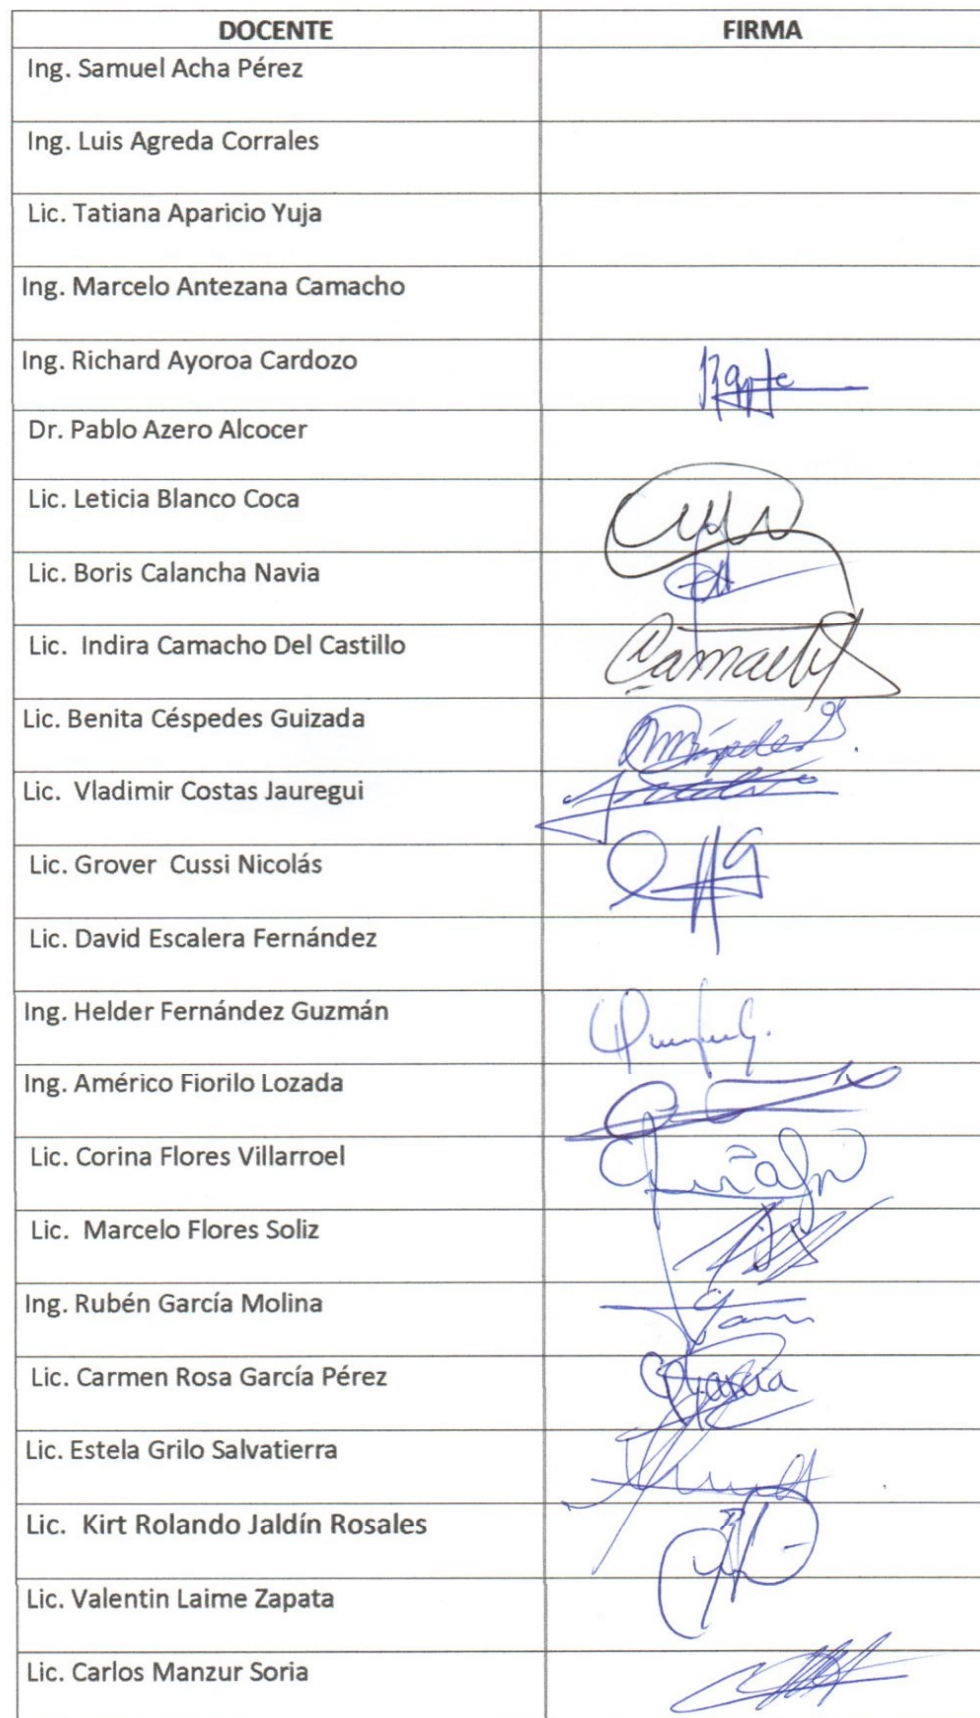 DOCENTE FIRMA
Ing. Samuel Acha Pérez
Ing. Luis Agreda Corrales
Lic. Tatiana Aparicio Yuja
Ing. Marcelo Antezana Camacho
Ing. Richard Ayoroa Cardozo
Dr. Pablo Azero Alcocer
Lic. Leticia Blanco Coca
Lic. Boris Calancha Navia
Lic. Indira Camacho Del Castillo
Lic. Benita Céspedes Guizada
Lic. Vladimir Costas Jauregui
Lic. Grover Cussi Nicolás
Lic. David Escalera Fernández
Ing. Helder Fernández Guzmán
Ing. Américo Fiorilo Lozada
Lic. Corina Flores Villarroel
Lic. Marcelo Flores Soliz
Ing. Rubén García Molina
Lic. Carmen Rosa García Pérez
Lic. Estela Grilo Salvatierra
Lic. Kirt Rolando Jaldín Rosales
Lic. Valentin Laime Zapata
Lic. Carlos Manzur Soria